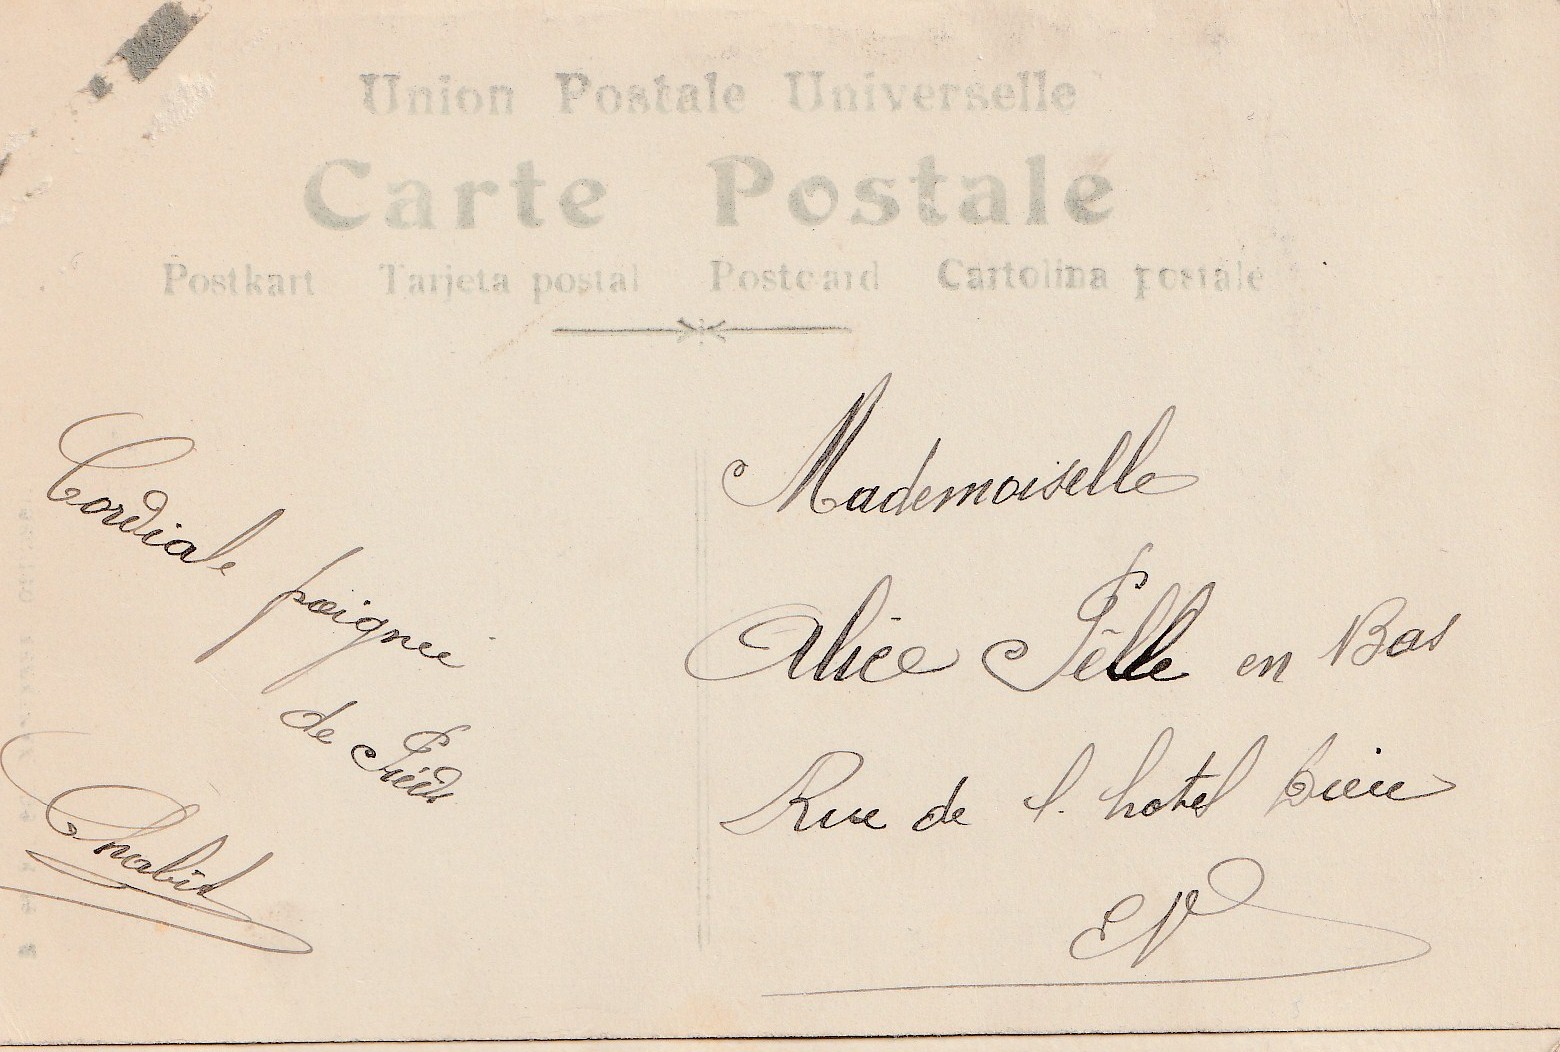 Union Postale Universelle
Carte Postale
Postkart Tarjeta postal Postcard Cartolina postale
Cordiale
poignée
de Pieds
Chabid
Mademoiselle
Alice Pelle en Bas
Rue de l. hotel Dieu
EV